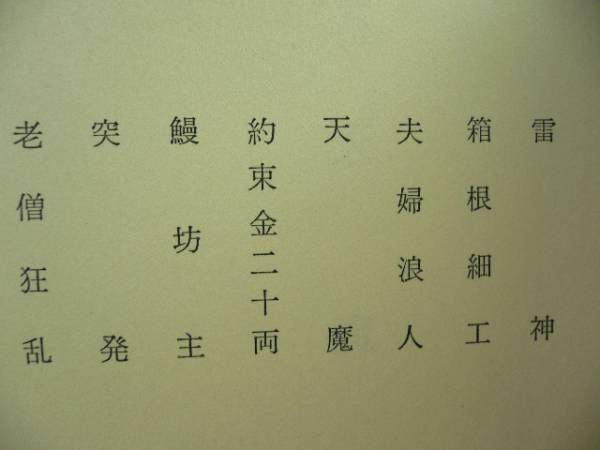 雷神
箱根細工
夫婦浪人
天魔
約束金二十両
鰻坊主
突発
老僧狂乱